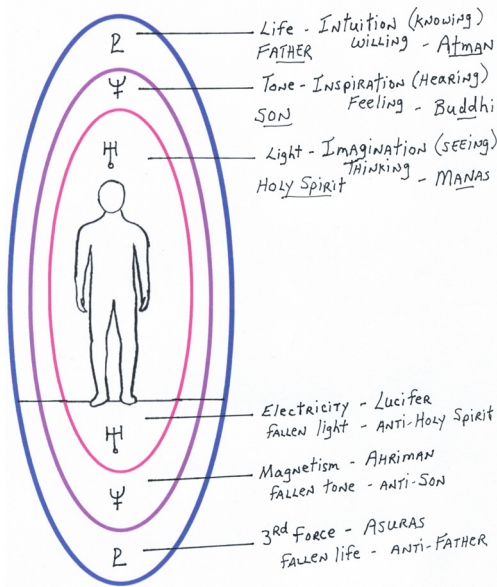 Life - Intuition (KNOWING)
FATHER WILLING - ATMAN
Tone - Inspiration (Hearing)
Feeling - Buddhi
SON
Light - Imagination (SEEING)
THINKING
HOLY SPIRIT - MANAS
Electricity - Lucifer
FALLEN light - ANTI-HOLY Spirit
Magnetism - AHRIMAN
FALLEN tone - ANTI-SON
3rd Force - ASURAS
FALLEN life - ANTI-FATHER